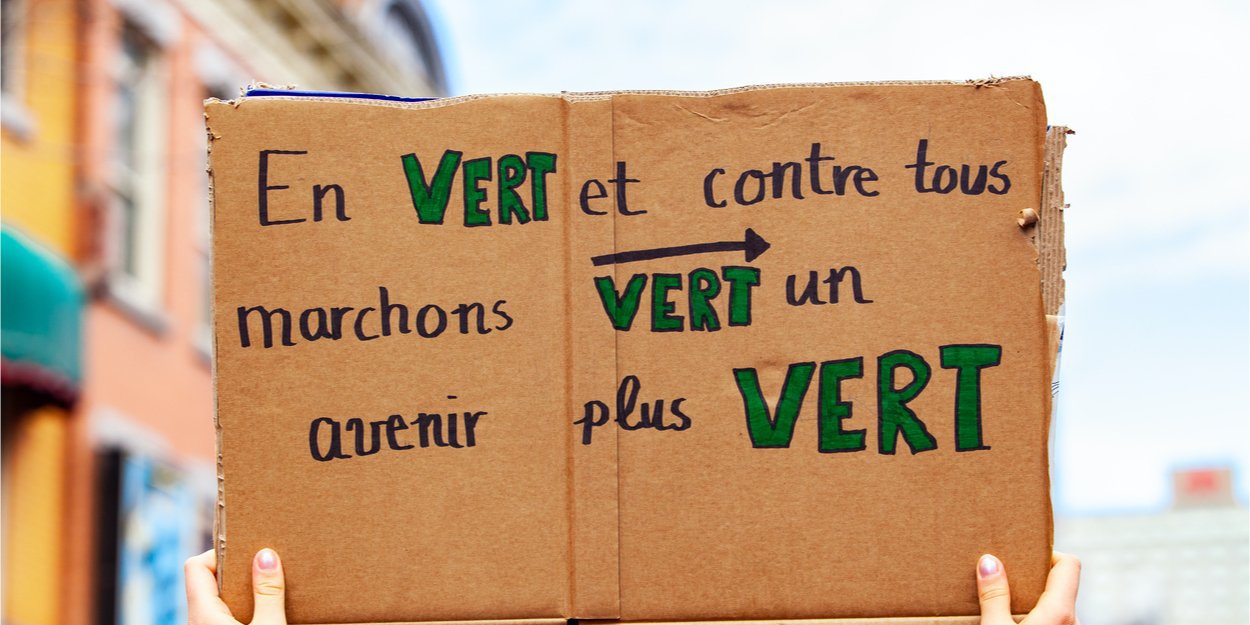 En VERT et contre tous
marchons VERT un
avenir plus VERT